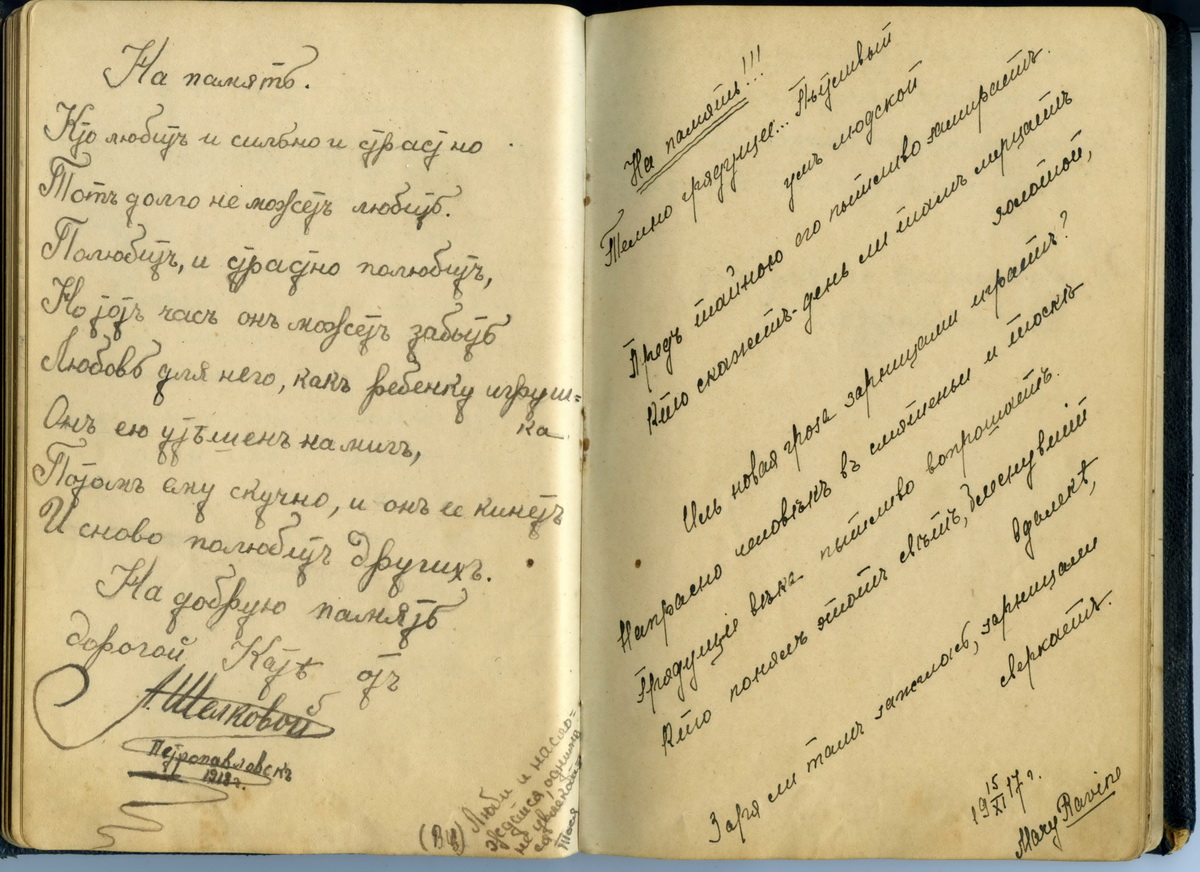 На память.
Кто любитъ и сильно и страстно
Тотъ долго не можетъ любить.
Полюбитъ, и страстно полюбитъ,
Но тотъ часъ онъ можетъ забыть
Любовь для него, какъ ребенку игруш=
ка.
Онъ ею утѣшенъ на мигъ,
Потомъ ему скучно, и онъ ее кинетъ
И сново полюбитъ другихъ.
На добрую память
дорогой Катѣ отъ
А. Шелковой
Петропавловскъ
1918 г.
Люби и насла=
ждайся, однимъ
не увлекайся
Тася
На память!!!
Темно грядущее... Пытливый
умъ людской
Предъ тайною его пытливо замираетъ.
Кто скажетъ - день ли тамъ мерцаетъ
золотой,
Иль новая гроза зарницами играетъ?
Напрасно человѣкъ въ смятеньи и тоскѣ
Грядущіе вѣка пытливо вопрошаетъ.
Кто понялъ этотъ свѣтъ, блеснувшій
вдалекѣ,
Заря ли тамъ зажглась, зарницами
сверкаетъ.
19 15/XI 17 г.
Mary Ravine